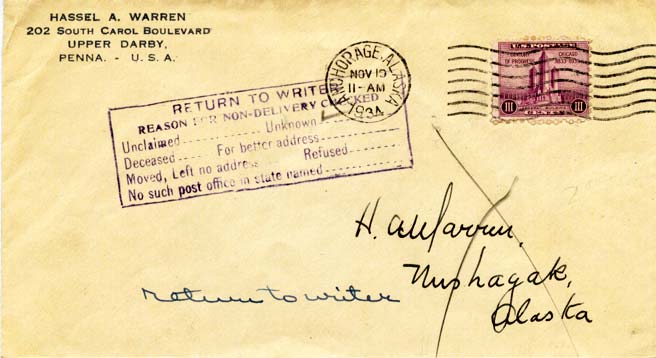 HASSEL A. WARREN
202 SOUTH CAROL BOULEVARD
UPPER DARBY,
PENNA. - U. S. A.
ANCHORAGE, ALASKA
NOV 19
11-AM
1934
U.S. POSTAGE
CENTURY OF PROGRESS
CHICAGO 1833-1933
III III
CENTS
RETURN TO WRITER
REASON FOR NON-DELIVERY CHECKED
Unclaimed........ Unknown........
Deceased..... For better address........
Moved, Left no address..... Refused........
No such post office in state named........
H. A. Warren,
Nushagak,
Alaska
return to writer